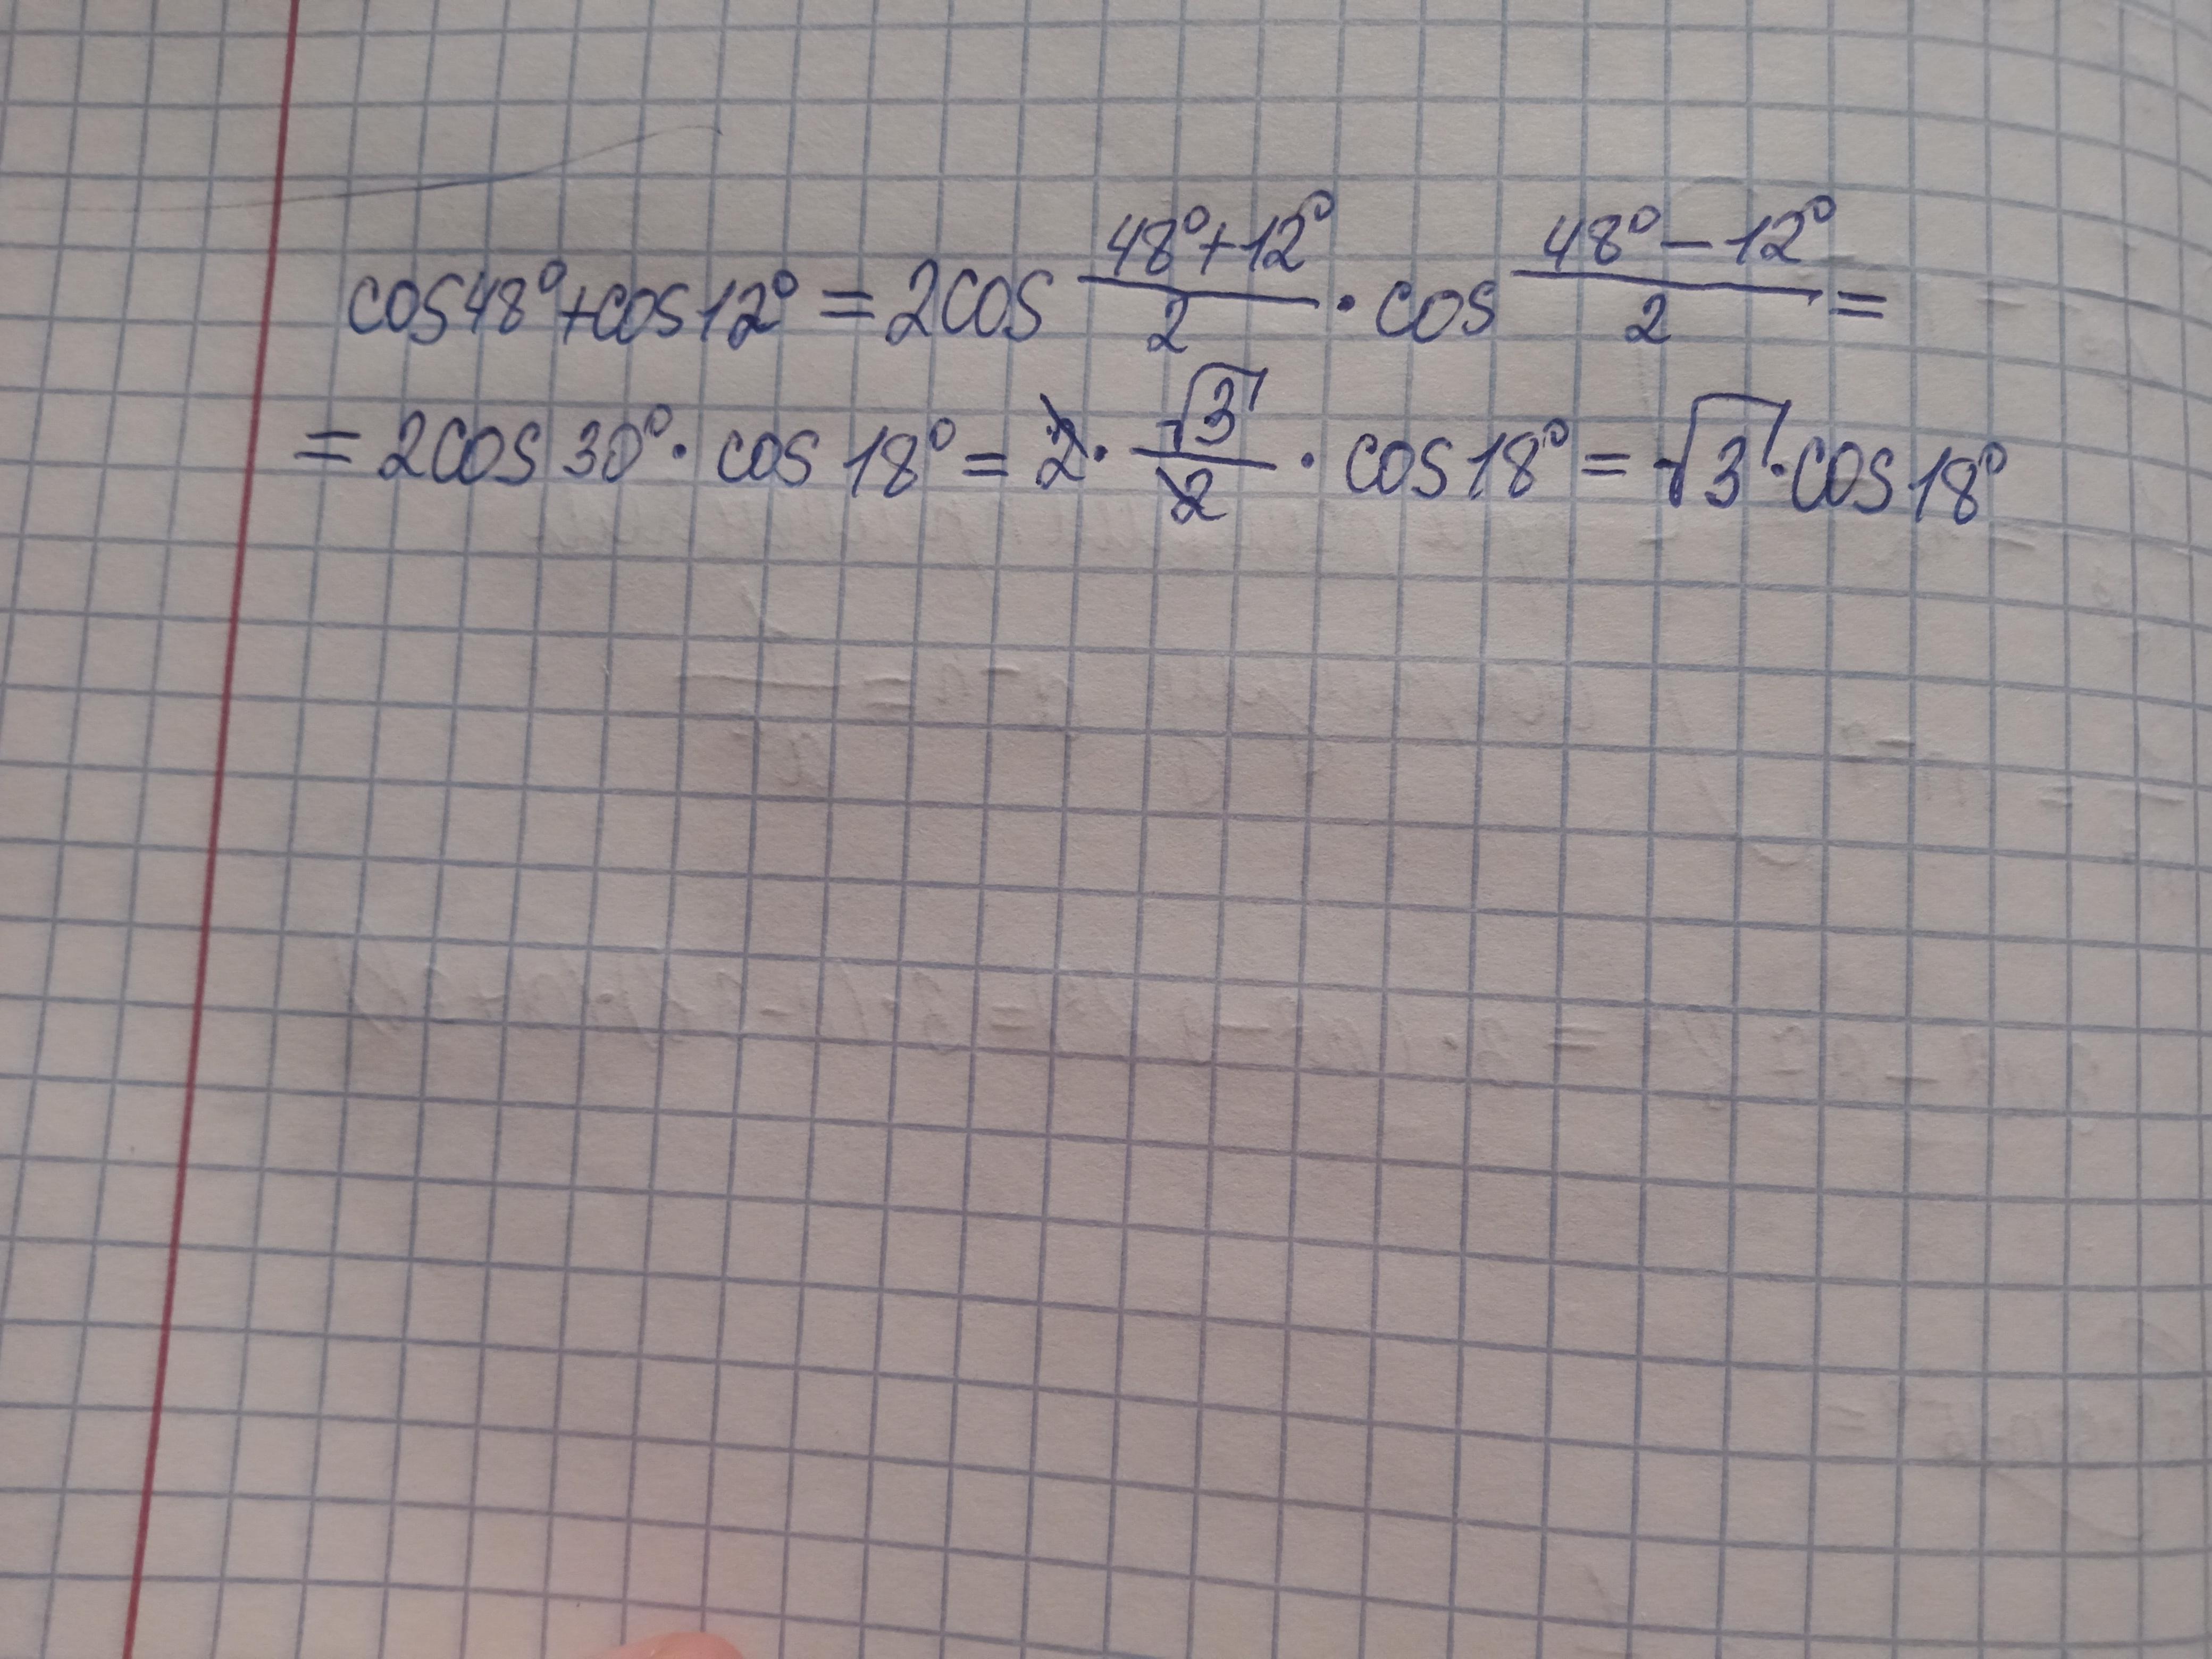 cos48°+cos12° = 2cos (48°+12°)/2 · cos (48°−12°)/2 =
= 2cos 30° · cos 18° = 2 · √3/2 · cos 18° = √3 · cos 18°